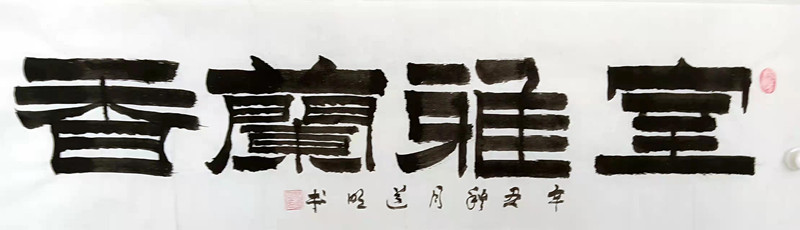 室雅蘭香
辛丑秋月道明书